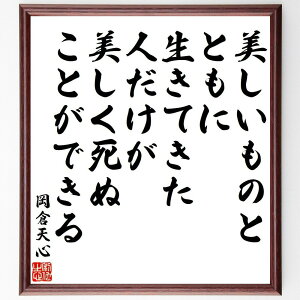 美しいものと
ともに
生きてきた
人だけが
美しく死ぬ
ことができる
岡倉天心